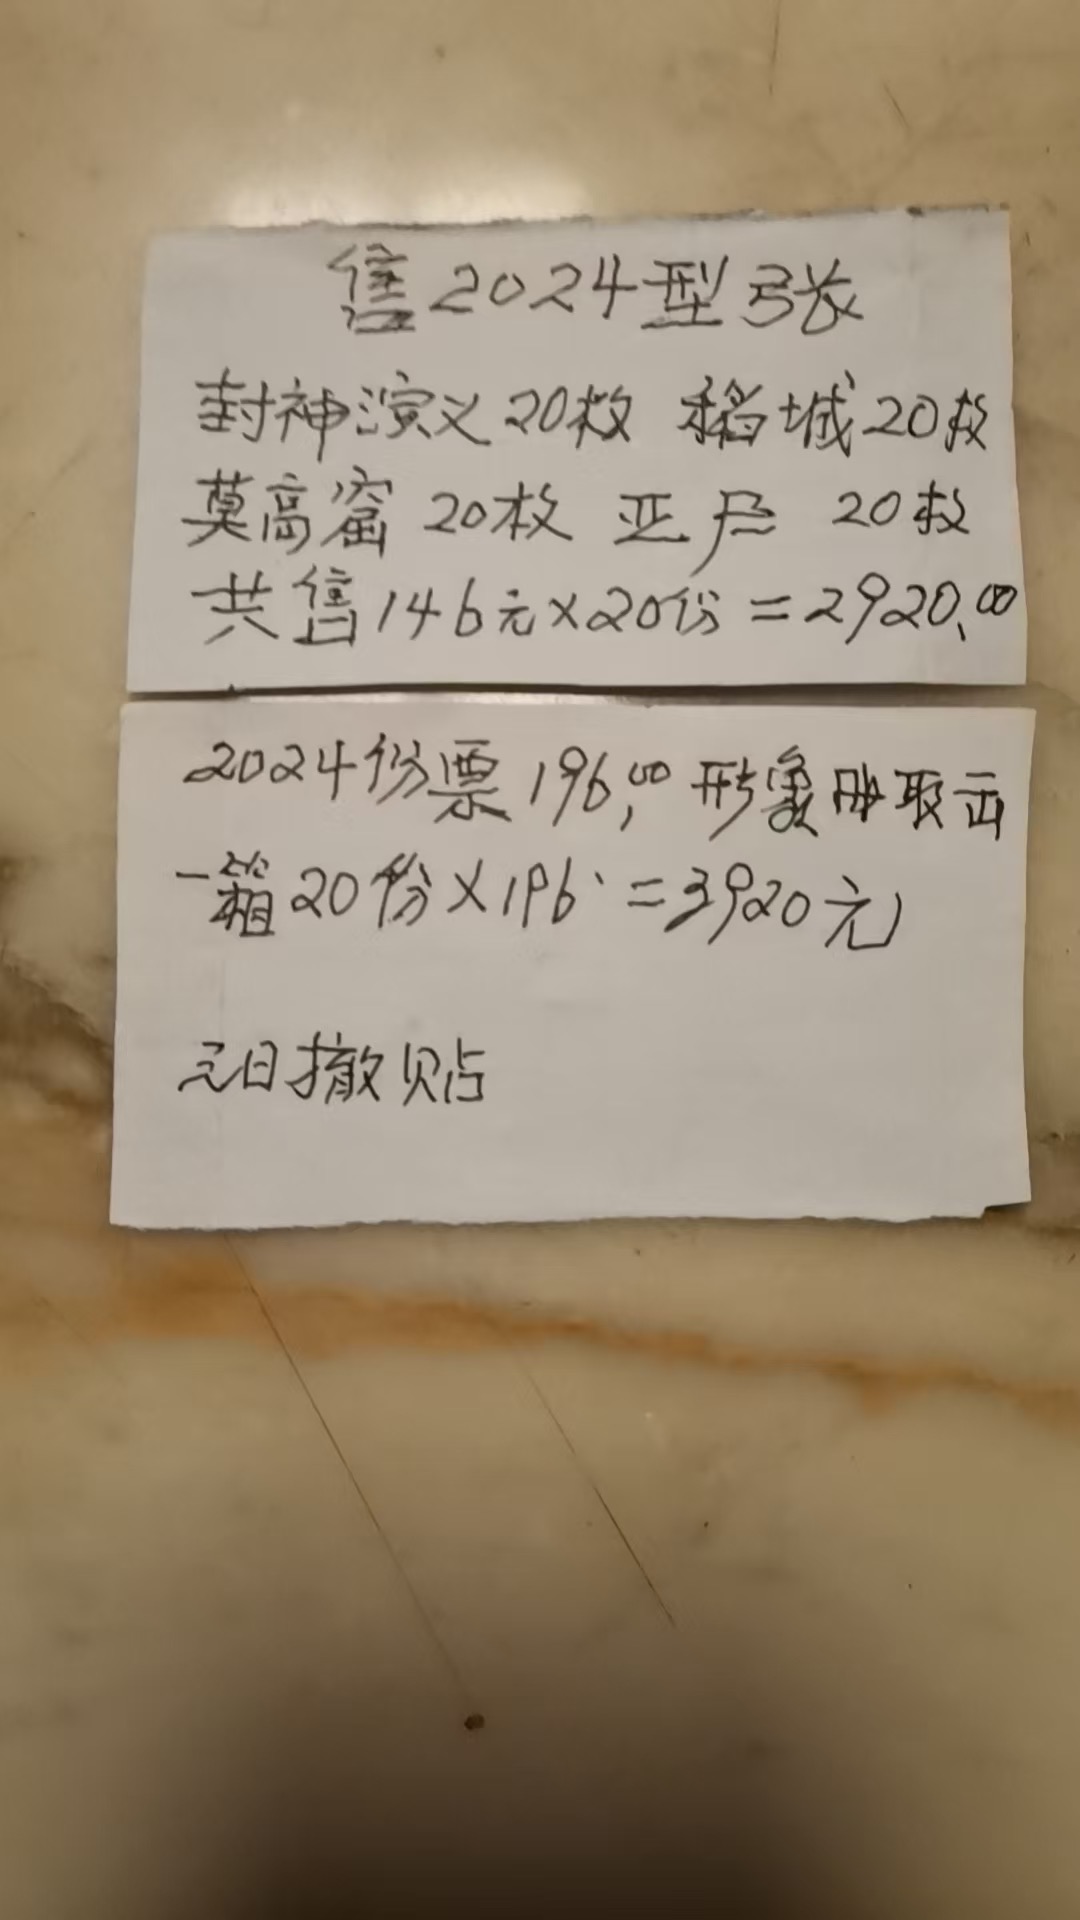 售2024型张
封神演义20枚 稻城20枚
莫高窟 20枚 亚 20枚
共售146元×20份=2920.00
2024份票196.00形象册取
一箱20份×196=3920元
元日撤贴